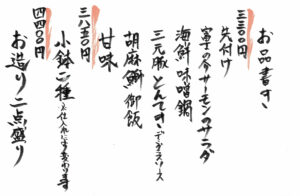 お品書き
三三〇〇円
先付け
富士の介サーモンサラダ
海鮮味噌鍋
三元豚とんてき デミグラスソース
胡麻鰤御飯
甘味
三八五〇円
小鉢二種 ※仕入れにより変わります
四四〇〇円
お造り二点盛り